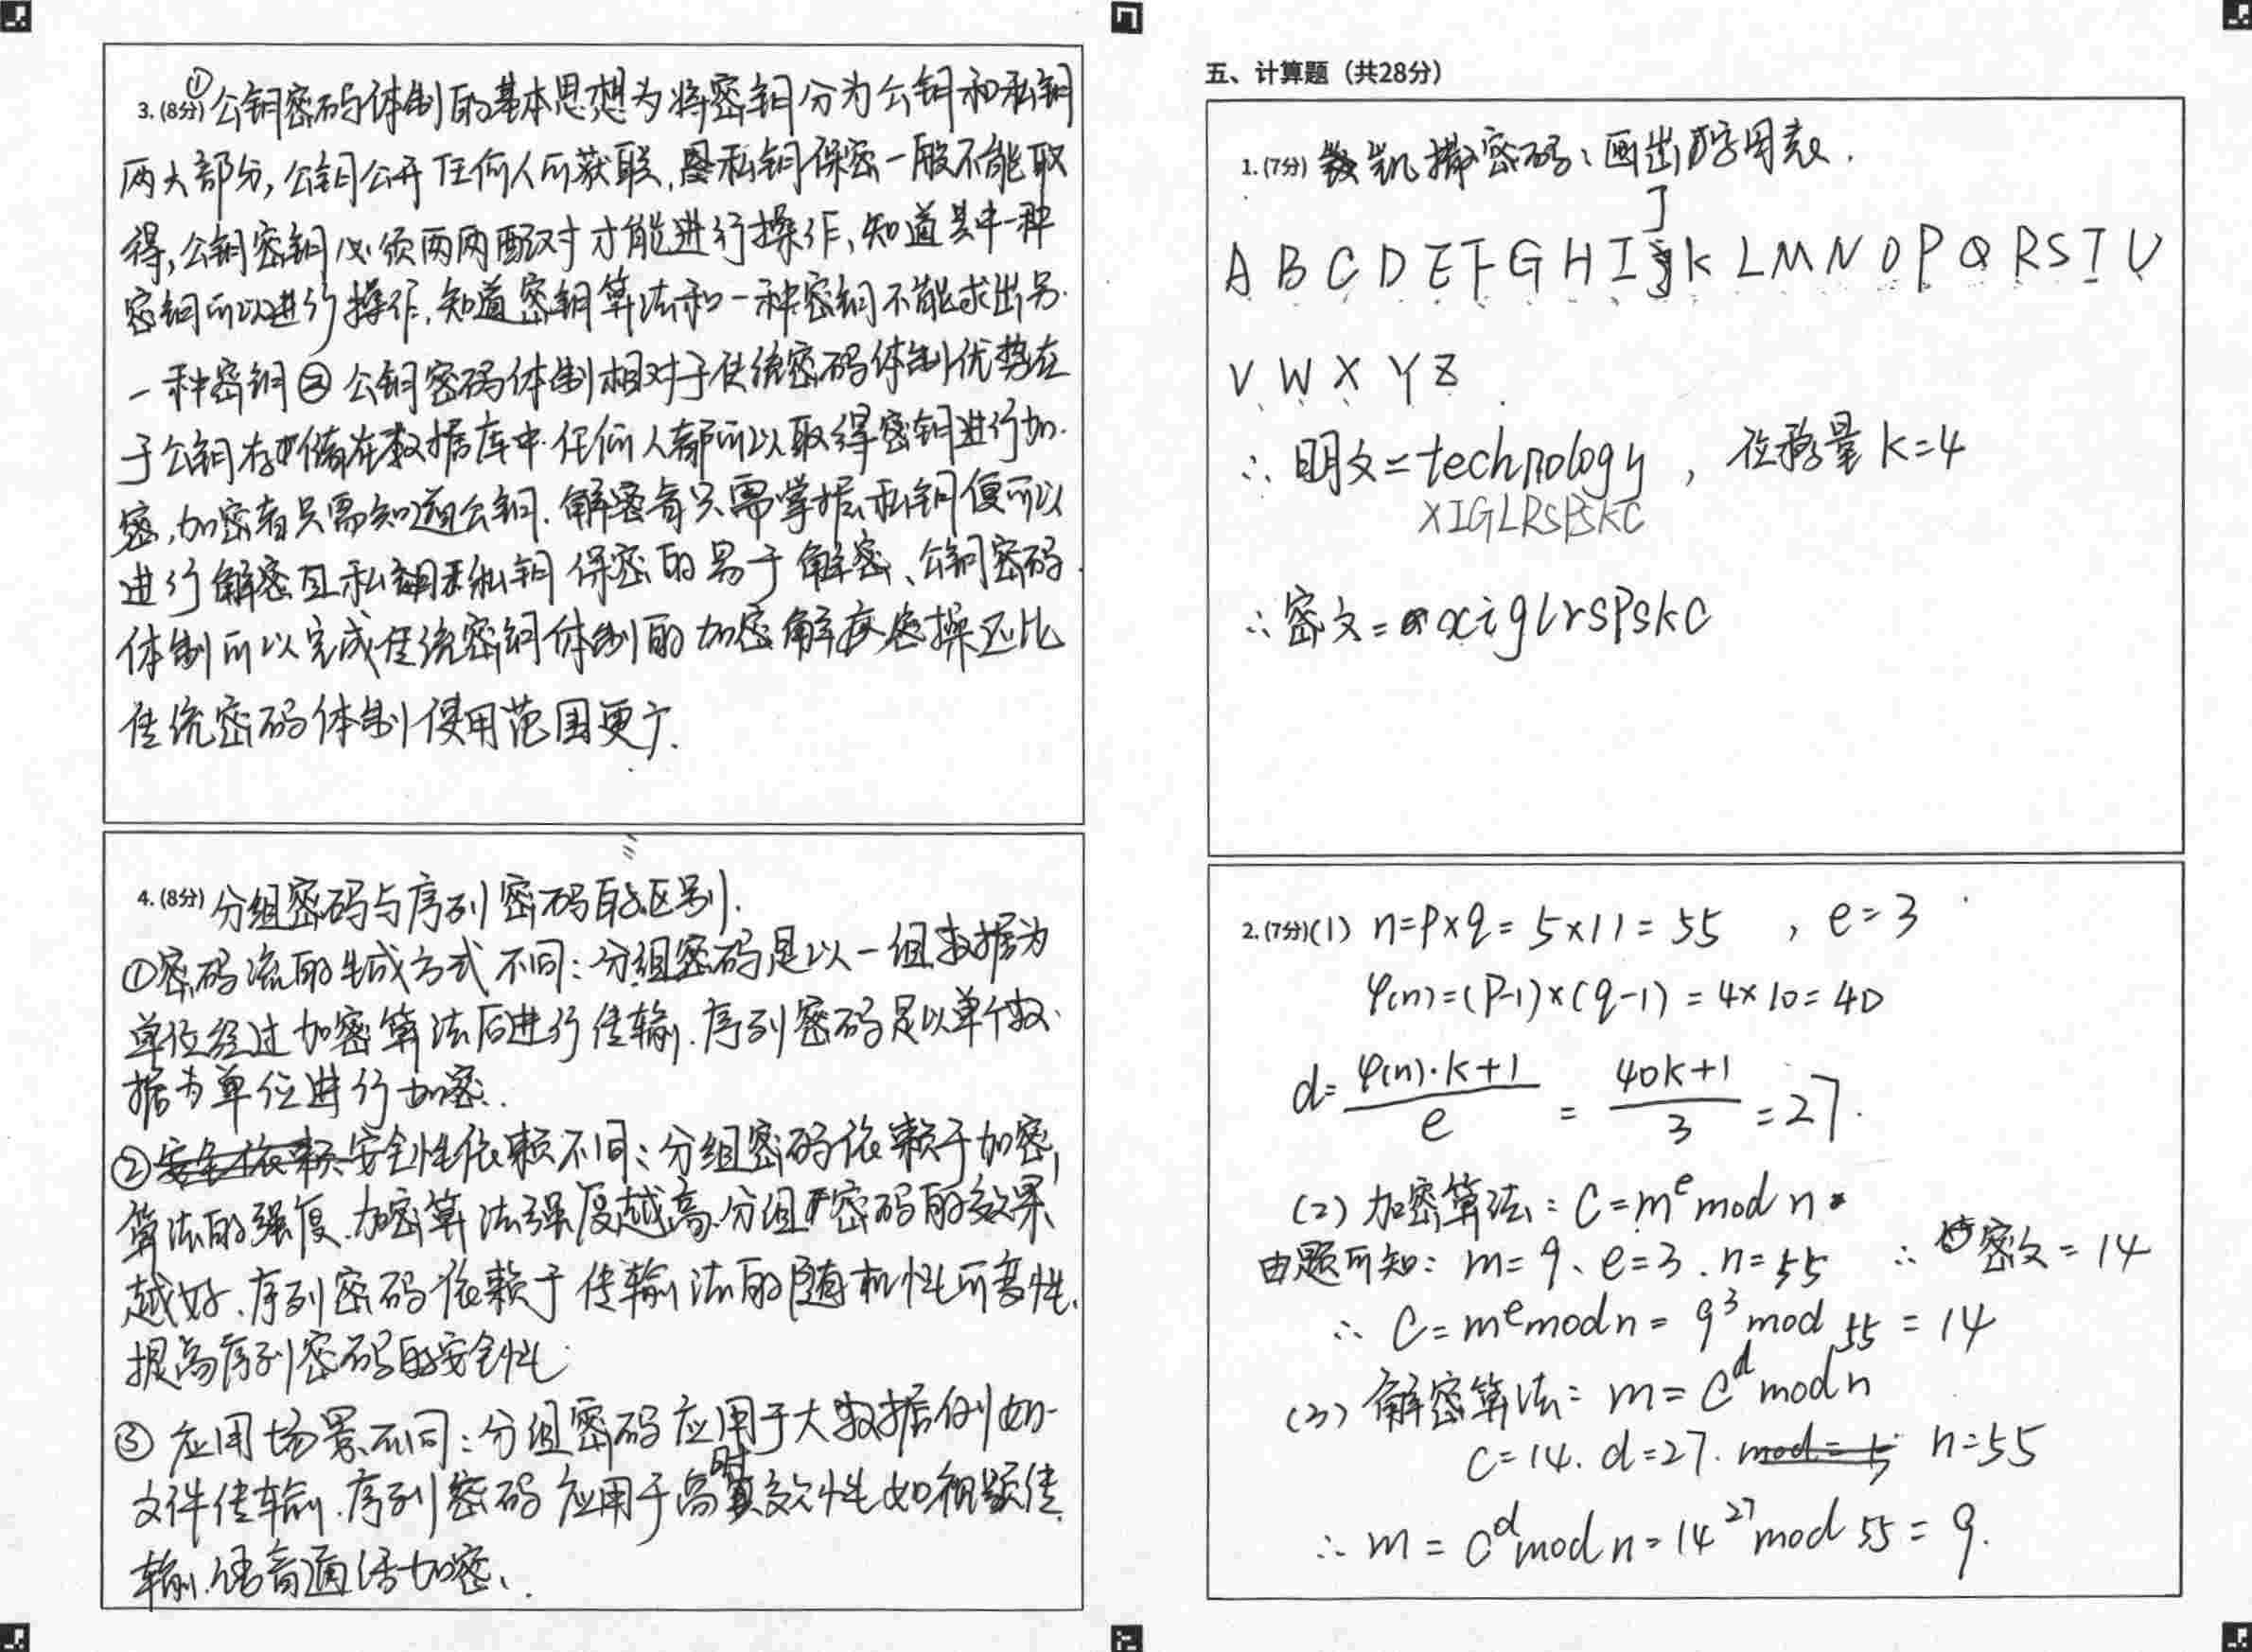 3.(8分)①公钥密码体制的基本思想为将密钥分为公钥和私钥
两大部分,公钥公开任何人可获取,私钥保密一般不能取
得,公钥密钥必须两两配对才能进行操作,知道其中一种
密钥可以进行操作,知道密钥算法和一种密钥不能求出另
一种密钥②公钥密码体制相对于传统密码体制优势在
于公钥存储在数据库中.任何人都可以取得密钥进行加
密,加密者只需知道公钥.解密者只需掌握私钥便可以
进行解密且私钥保密的易于解密、公钥密码
体制可以完成传统密钥体制的加密解密操还比
传统密码体制使用范围更广.
4.(8分)分组密码与序列密码的区别.
①密码流的生成方式不同:分组密码是以一组数据为
单位经过加密算法后进行传输.序列密码是以单个数
据为单位进行加密.
②安全性依赖不同:分组密码依赖于加密
算法的强度.加密算法强度越高.分组密码的效果
越好.序列密码依赖于传输法的随机性可变性.
提高序列密码的安全性
③应用场景不同:分组密码应用于大数据例如
文件传输.序列密码应用于高时效性如视频传
输.语音通话加密.
五、计算题(共28分)
1.(7分)凯撒密码:画出字母表.
A B C D E F G H I J K L M N O P Q R S T U
V W X Y Z
∴明文=technology,位移量K=4
XIGLRSPSKC
∴密文=xiglrspskc
2.(7分)(1) n=p×q=5×11=55 , e=3
φ(n)=(p-1)×(q-1)=4×10=40
d=φ(n)·k+1/e=40k+1/3=27.
(2)加密算法:C=m^e mod n
由题可知:m=9、e=3.n=55 ∴密文=14
∴C=m^e mod n=9^3 mod 55=14
(3)解密算法:m=C^d mod n
C=14.d=27. n=55
∴m=C^d mod n=14^27 mod 55=9.